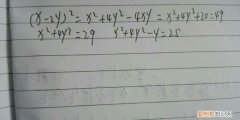 (x-2y)²=x²+4y²-4xy=x²+4y²+20=49
x²+4y²=29 x²+4y²-4=25